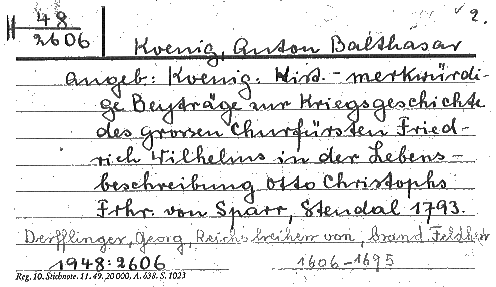 48
2606
2.
Koenig, Anton Balthasar
angeb: Koenig: Hist.-merkwürdi-
ge Beyträge zur Kriegsgeschichte
des grossen Churfürsten Fried-
rich Wilhelms in der Lebens-
beschreibung Otto Christophs
Frhr. von Sparr, Stendal 1793.
Derfflinger, Georg, Reichsfreiherr von, Brand. Feldherr
1948:2606 1606-1695
Reg. 10. Stichnote. 11. 49. 20000, A. 638. S. 1023